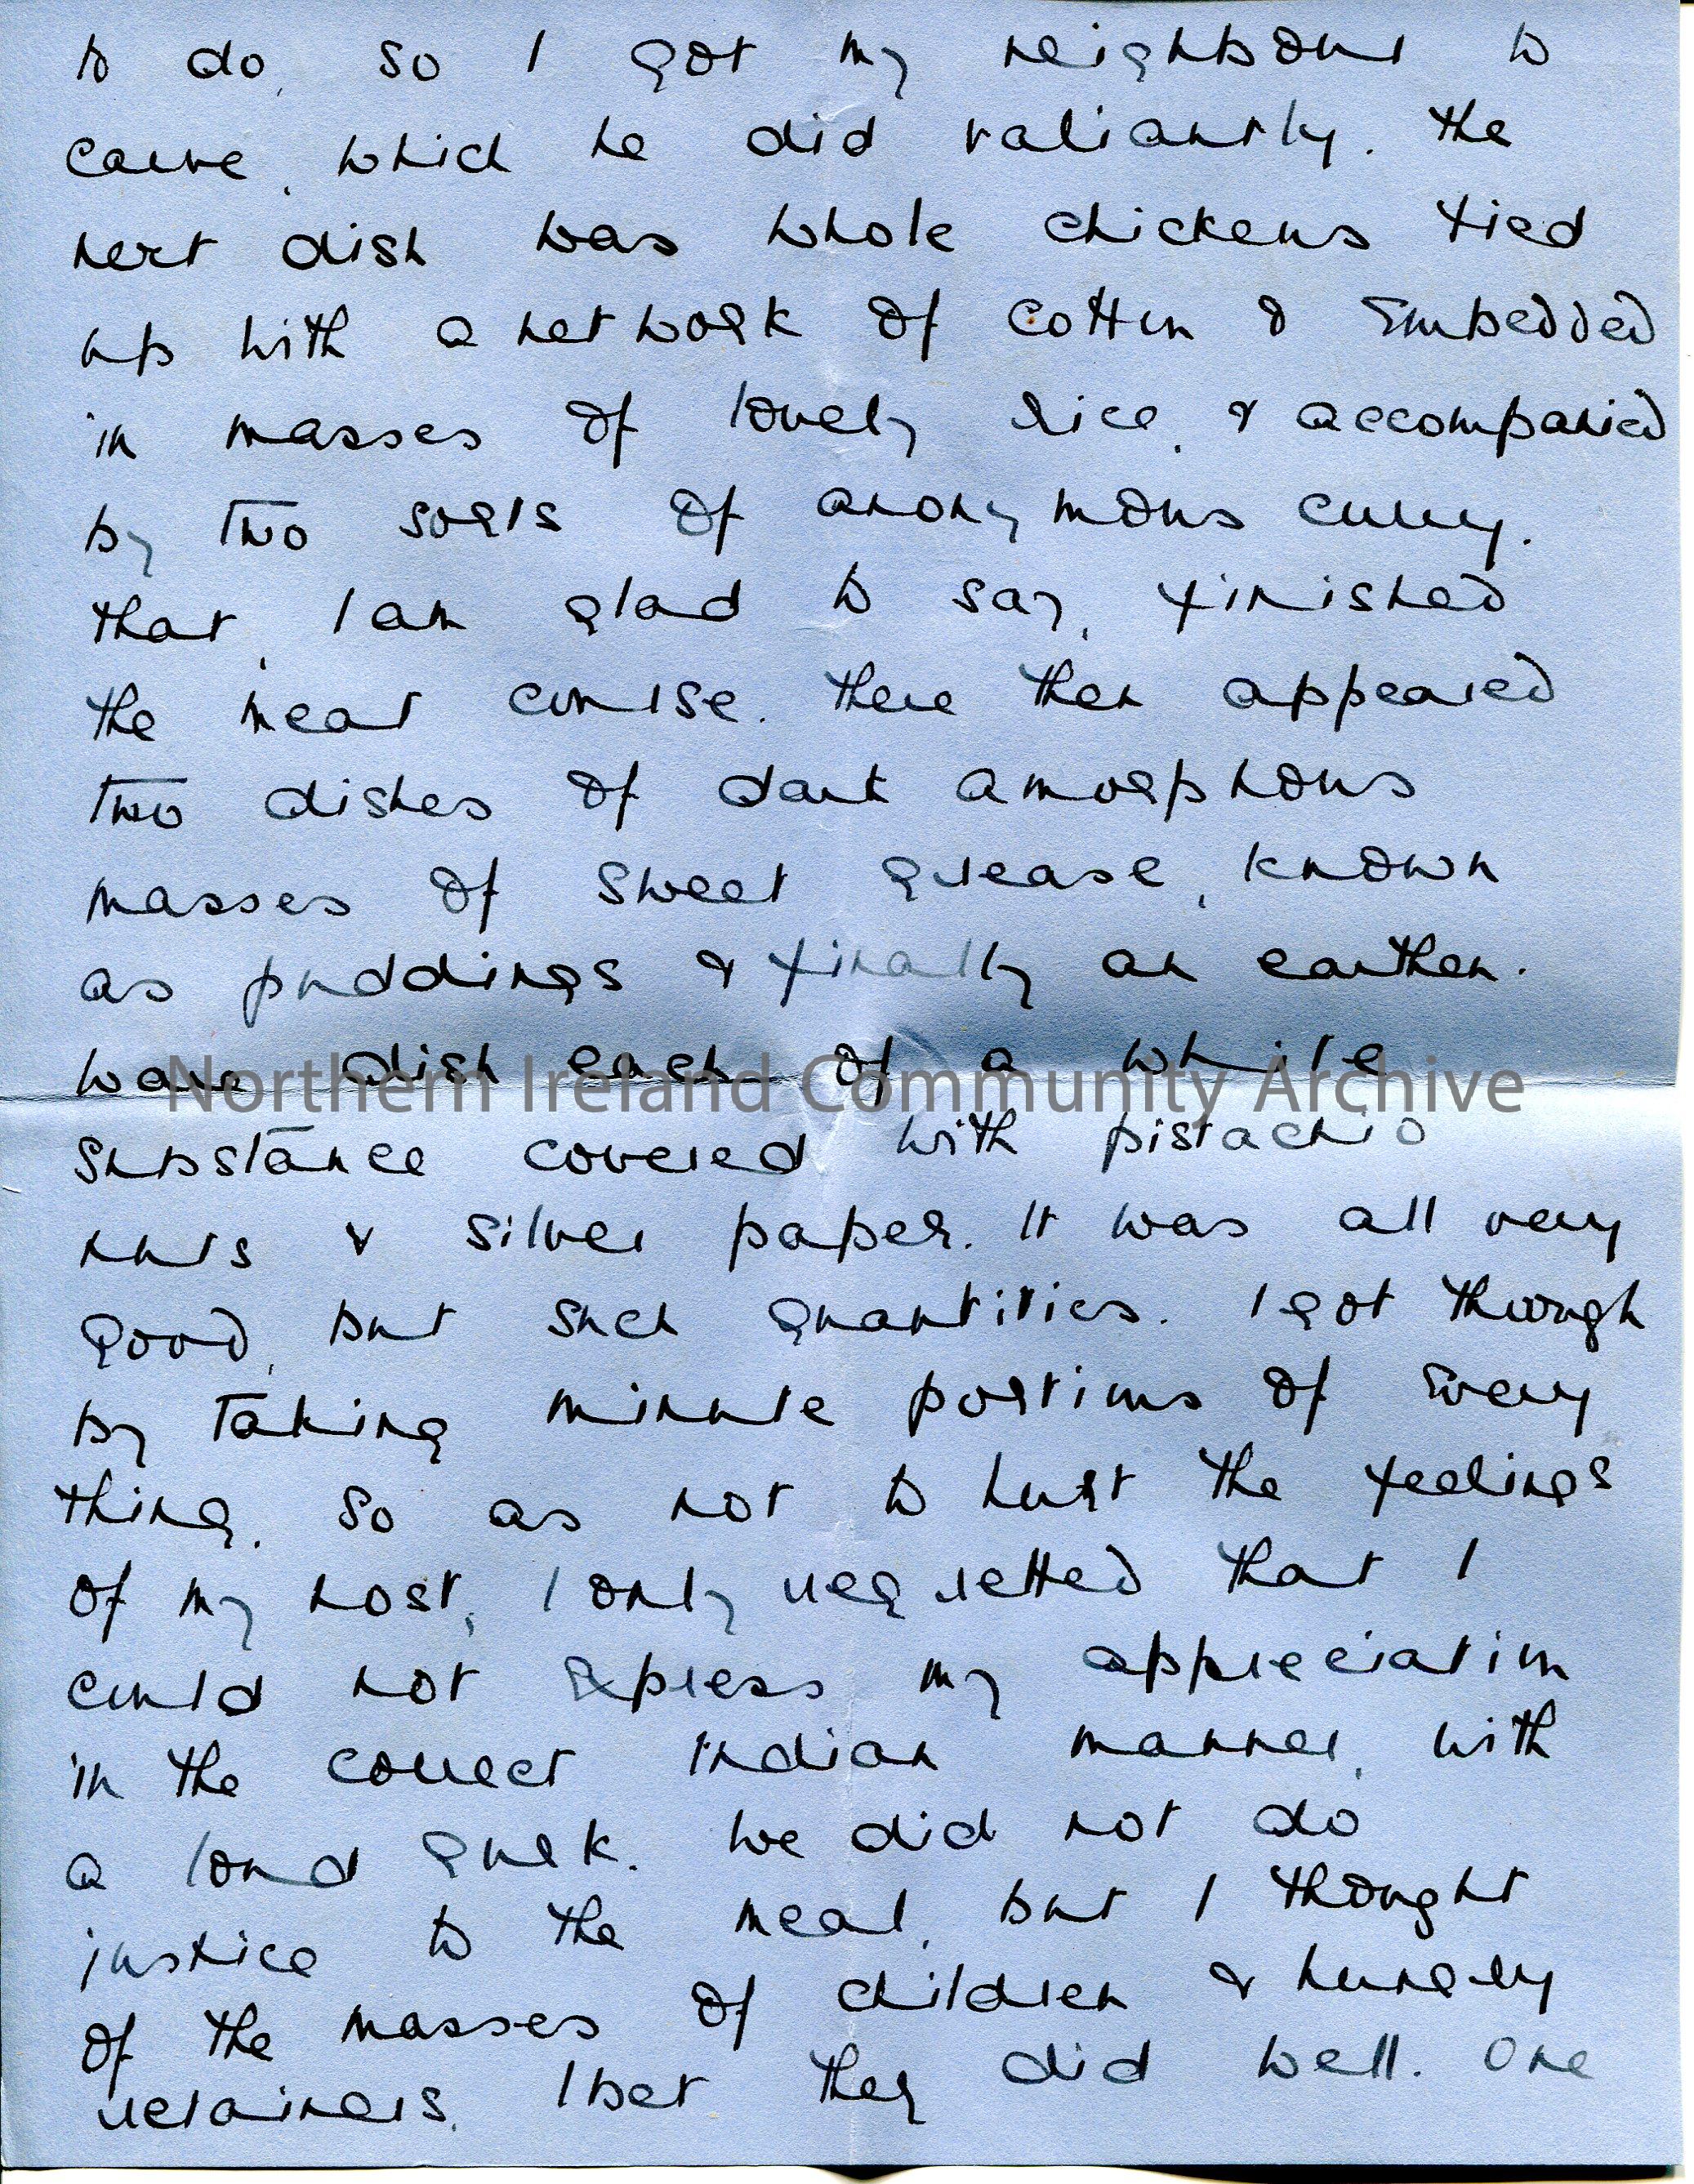 to do, so I got my neighbour to
carve, which he did valiantly. The
next dish was whole chickens tied
up with a network of cotton & embedded
in masses of lovely rice, & accompanied
by two sorts of anonymous curry.
That, I am glad to say, finished
the meat course. There then appeared
two dishes of dark amorphous
masses of sweet grease, known
as puddings & finally an earthen-
ware dish each of a white
Northern Ireland Community Archive
substance covered with pistachio
nuts & silver paper. It was all very
good, but such quantities. I got through
by taking minute portions of every
thing, so as not to hurt the feelings
of my host, I only regretted that I
could not express my appreciation
in the correct Indian manner, with
a loud gurk. We did not do
justice to the meal, but I thought
of the masses of children & hungry
retainers. I bet they did well. One